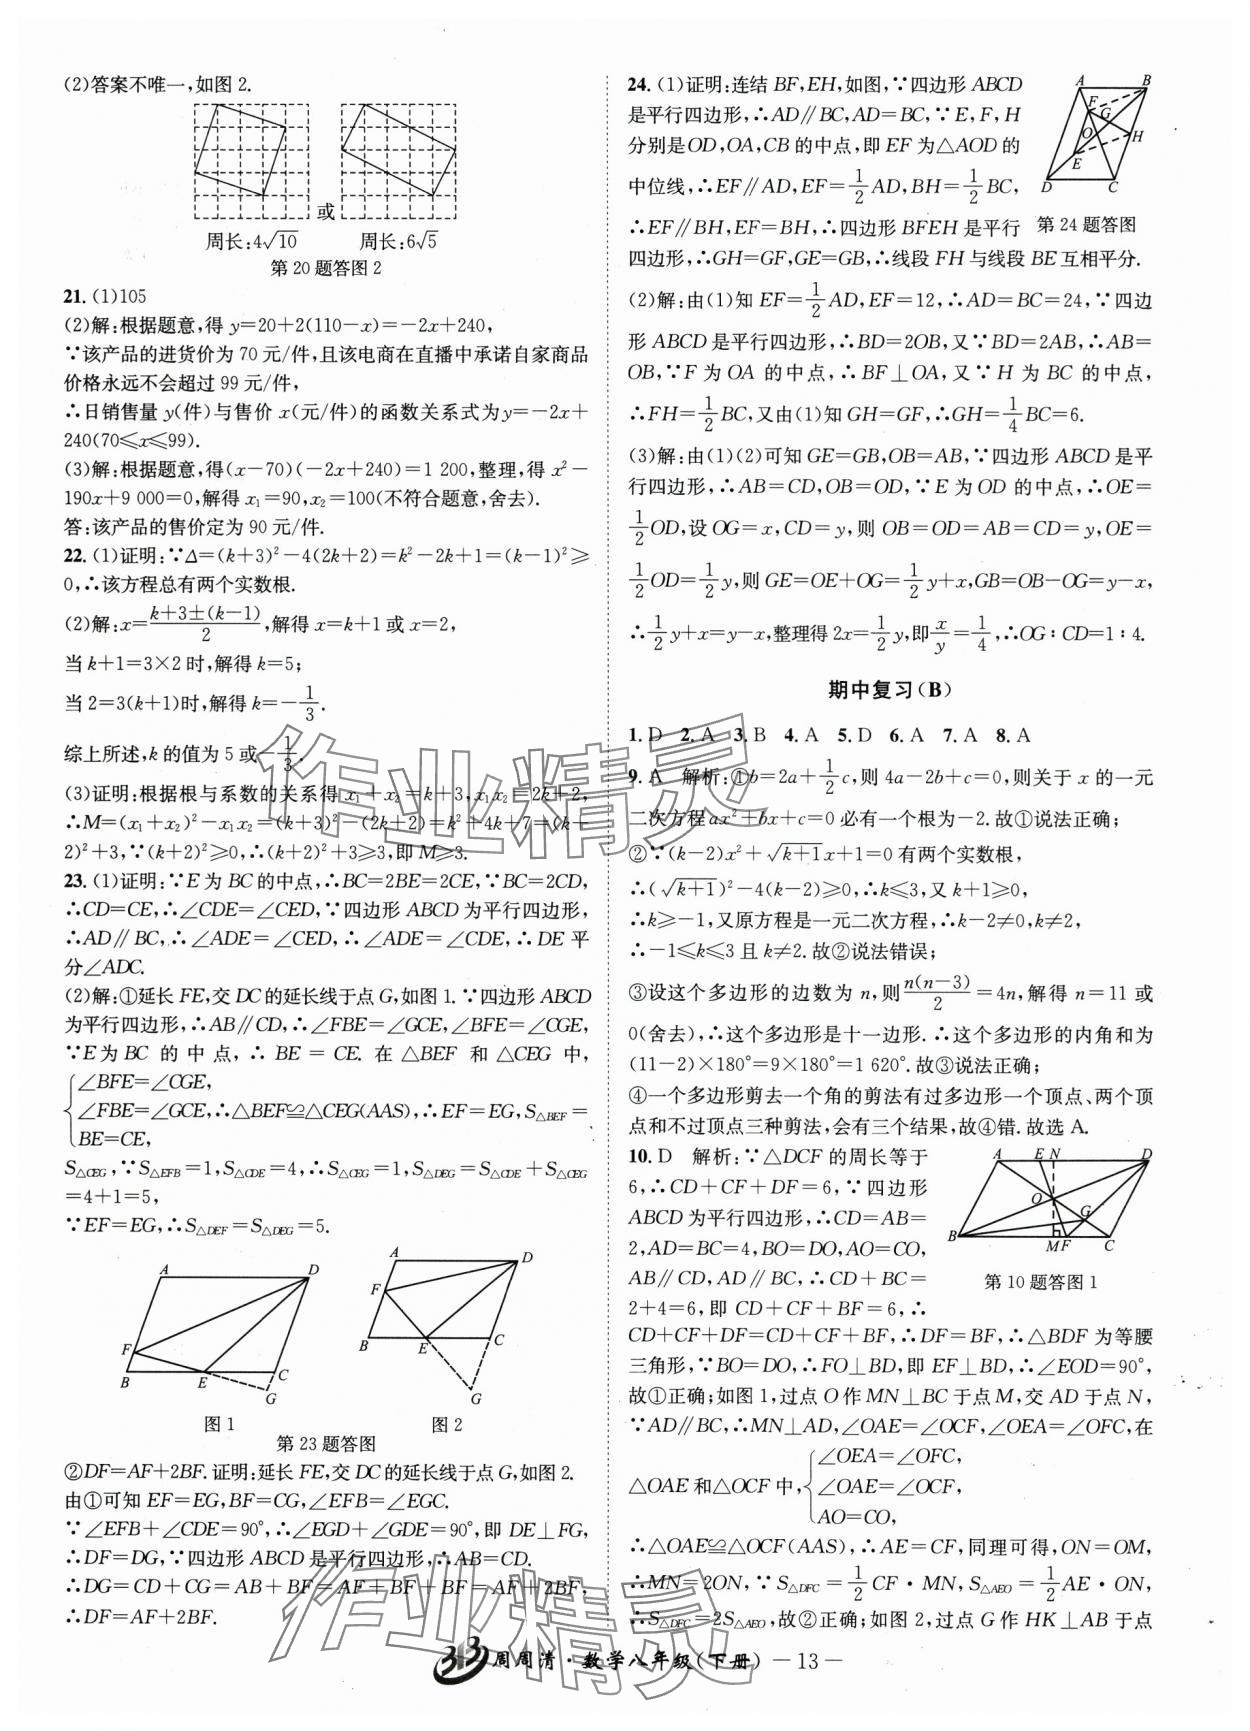 (2)答案不唯一,如图 2.
或
周长:4√10　周长:6√5
第 20 题答图 2
21. (1)105
(2)解:根据题意,得 y=20+2(110-x)=-2x+240,
∵该产品的进货价为 70 元/件,且该电商在直播中承诺自家商品
价格永远不会超过 99 元/件,
∴日销售量 y(件)与售价 x(元/件)的函数关系式为y=-2x+
240(70≤x≤99).
(3)解:根据题意,得(x-70)(-2x+240)=1 200,整理,得 x²-
190x+9 000=0,解得 x₁=90,x₂=100(不符合题意,舍去).
答:该产品的售价定为 90 元/件.
22. (1)证明:∵Δ=(k+3)²-4(2k+2)=k²-2k+1=(k-1)²≥
0,∴该方程总有两个实数根.
(2)解:x=(k+3±(k-1))/2,解得 x=k+1或 x=2,
当 k+1=3×2 时,解得 k=5;
当 2=3(k+1)时,解得 k=-1/3.
综上所述,k 的值为 5 或-1/3.
(3)证明:根据根与系数的关系得 x₁+x₂=k+3,x₁x₂=2k+2,
∴M=(x₁+x₂)²-x₁x₂=(k+3)²-(2k+2)=k²+4k+7=(k+
2)²+3,∵(k+2)²≥0,∴(k+2)²+3≥3,即 M≥3.
23. (1)证明:∵E 为 BC 的中点,∴BC=2BE=2CE,∵BC=2CD,
∴CD=CE,∴∠CDE=∠CED,∵四边形 ABCD 为平行四边形,
∴AD∥BC,∴∠ADE=∠CED,∴∠ADE=∠CDE,∴DE 平
分∠ADC.
(2)解:①延长 FE,交 DC 的延长线于点 G,如图 1.∵四边形ABCD
为平行四边形,∴AB∥CD,∴∠FBE=∠GCE,∠BFE=∠CGE,
∵E为 BC 的中点,∴BE=CE. 在 △BEF 和 △CEG 中,
∠BFE=∠CGE,
∠FBE=∠GCE,∴△BEF≌△CEG(AAS),∴EF=EG,S△BEF=
BE=CE,
S△CEG,∵S△EFB=1,S△CDE=4,∴S△CEG=1,S△DEG=S△CDE+S△CEG
=4+1=5,
∵EF=EG,∴S△DEF=S△DEG=5.
A D F B E C G
图 1
A D F B E C G
图 2
第 23 题答图
②DF=AF+2BF.证明:延长 FE,交 DC的延长线于点 G,如图 2.
由①可知 EF=EG,BF=CG,∠EFB=∠EGC.
∵∠EFB+∠CDE=90°,∴∠EGD+∠GDE=90°,即 DE⊥FG,
∴DF=DG,∵四边形 ABCD 是平行四边形,∴AB=CD.
∴DG=CD+CG=AB+BF=AF+BF+BF=AF+2BF,
∴DF=AF+2BF.
24. (1)证明:连结 BF,EH,如图,∵四边形 ABCD
是平行四边形,∴AD∥BC,AD=BC,∵E,F,H
分别是OD,OA,CB 的中点,即 EF 为△AOD 的
中位线,∴EF∥AD,EF=1/2AD,BH=1/2BC,
∴EF∥BH,EF=BH,∴四边形 BFEH 是平行
四边形,∴GH=GF,GE=GB,∴线段 FH 与线段 BE互相平分.
A B F G O H E D C
第 24 题答图
(2)解:由(1)知 EF=1/2AD,EF=12,∴AD=BC=24,∵四边
形 ABCD 是平行四边形,∴BD=2OB,又∵BD=2AB,∴AB=
OB,∵F 为 OA 的中点,∴BF⊥OA,又∵H 为 BC 的中点,
∴FH=1/2BC,又由(1)知 GH=GF,∴GH=1/4BC=6.
(3)解:由(1)(2)可知 GE=GB,OB=AB,∵四边形 ABCD 是平
行四边形,∴AB=CD,OB=OD,∵E 为 OD 的中点,∴OE=
1/2OD,设 OG=x,CD=y,则 OB=OD=AB=CD=y,OE=
1/2OD=1/2y,则 GE=OE+OG=1/2y+x,GB=OB-OG=y-x,
∴1/2y+x=y-x,整理得 2x=1/2y,即x/y=1/4,∴OG∶CD=1∶4.
期中复习(B)
1. D 2. A 3. B 4. A 5. D 6. A 7. A 8. A
9. A 解析:①b=2a+1/2c,则 4a-2b+c=0,则关于 x 的一元
二次方程 ax²+bx+c=0 必有一个根为-2.故①说法正确;
②∵(k-2)x²+√(k+1)x+1=0 有两个实数根,
∴(√(k+1))²-4(k-2)≥0,∴k≤3,又 k+1≥0,
∴k≥-1,又原方程是一元二次方程,∴k-2≠0,k≠2,
∴-1≤k≤3 且 k≠2.故②说法错误;
③设这个多边形的边数为 n,则n(n-3)/2=4n,解得 n=11 或
0(舍去),∴这个多边形是十一边形.∴这个多边形的内角和为
(11-2)×180°=9×180°=1 620°.故③说法正确;
④一个多边形剪去一个角的剪法有过多边形一个顶点、两个顶
点和不过顶点三种剪法,会有三个结果,故④错.故选 A.
10. D 解析:∵△DCF 的周长等于
6,∴CD+CF+DF=6,∵四边形
ABCD 为平行四边形,∴CD=AB=
2,AD=BC=4,BO=DO,AO=CO,
AB∥CD,AD∥BC,∴CD+BC=
2+4=6,即 CD+CF+BF=6,∴
A E N D O G B M F C
第 10 题答图 1
CD+CF+DF=CD+CF+BF,∴DF=BF,∴△BDF 为等腰
三角形,∵BO=DO,∴FO⊥BD,即 EF⊥BD,∴∠EOD=90°,
故①正确;如图 1,过点 O 作 MN⊥BC 于点 M,交 AD 于点 N,
∵AD∥BC,∴MN⊥AD,∠OAE=∠OCF,∠OEA=∠OFC,在
∠OEA=∠OFC,
△OAE 和△OCF 中,∠OAE=∠OCF,
AO=CO,
∴△OAE≌△OCF(AAS),∴AE=CF,同理可得,ON=OM,
∴MN=2ON,∵S△DFC=1/2CF·MN,S△AEO=1/2AE·ON,
∴S△DFC=2S△AEO,故②正确;如图 2,过点 G 作 HK⊥AB 于点
作业精灵
作业精灵
周周清·数学八年级(下册) —13—